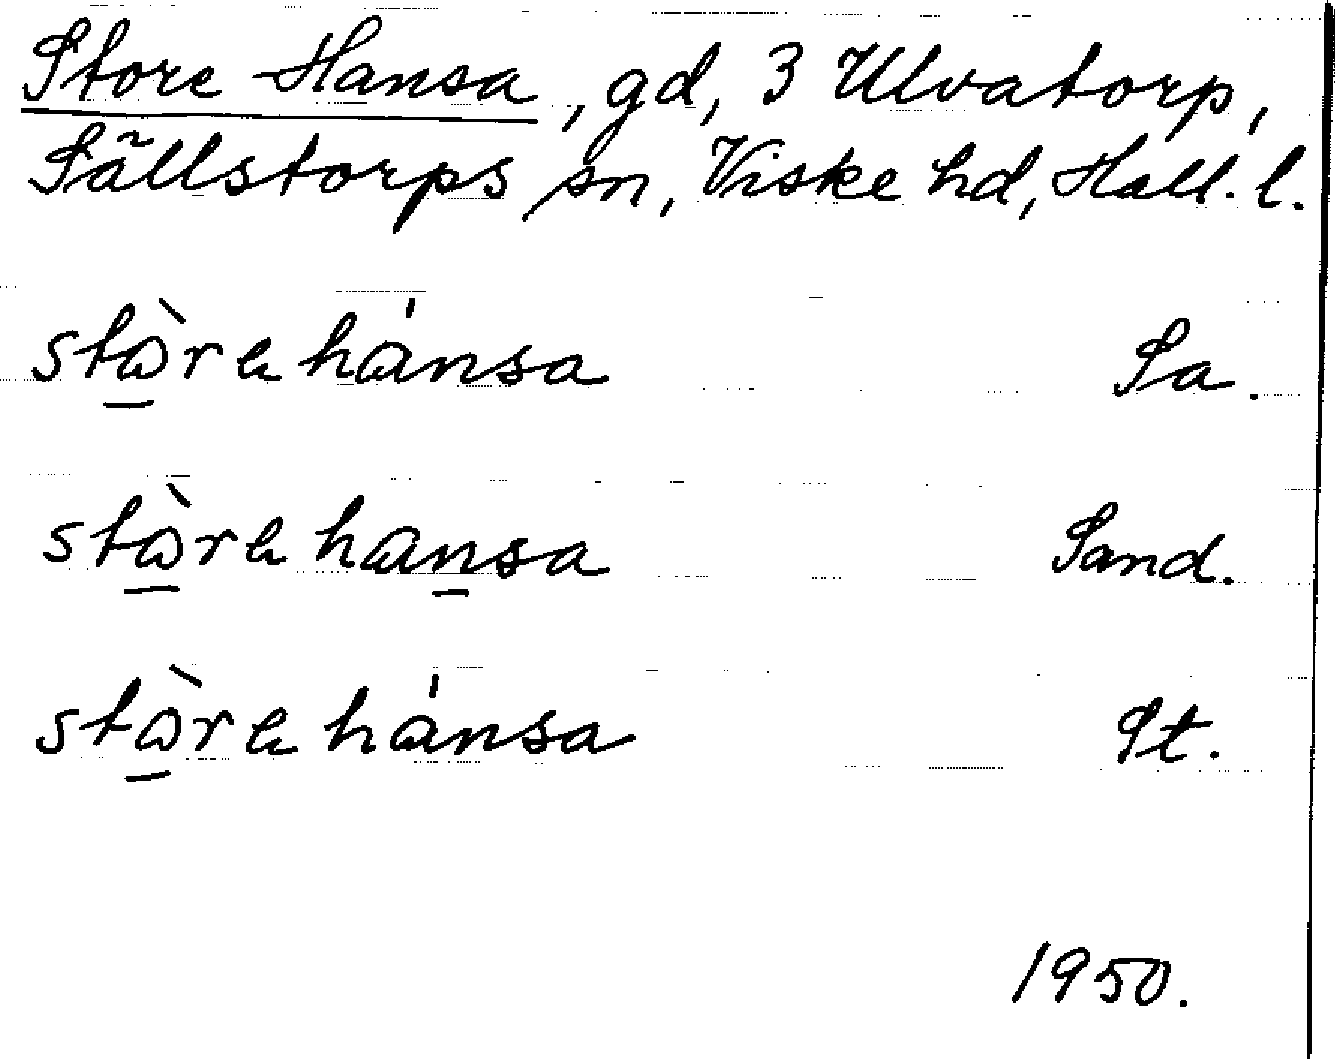 Store Hansa, gd, 3 Ulvatorp,
Sällstorps sn, Viske hd, Hall. l.
stὼ̲rə hánsa Sa.
stὼ̲rə han̲sa Sand.
stὼ̲rə hánsa St.
1950.